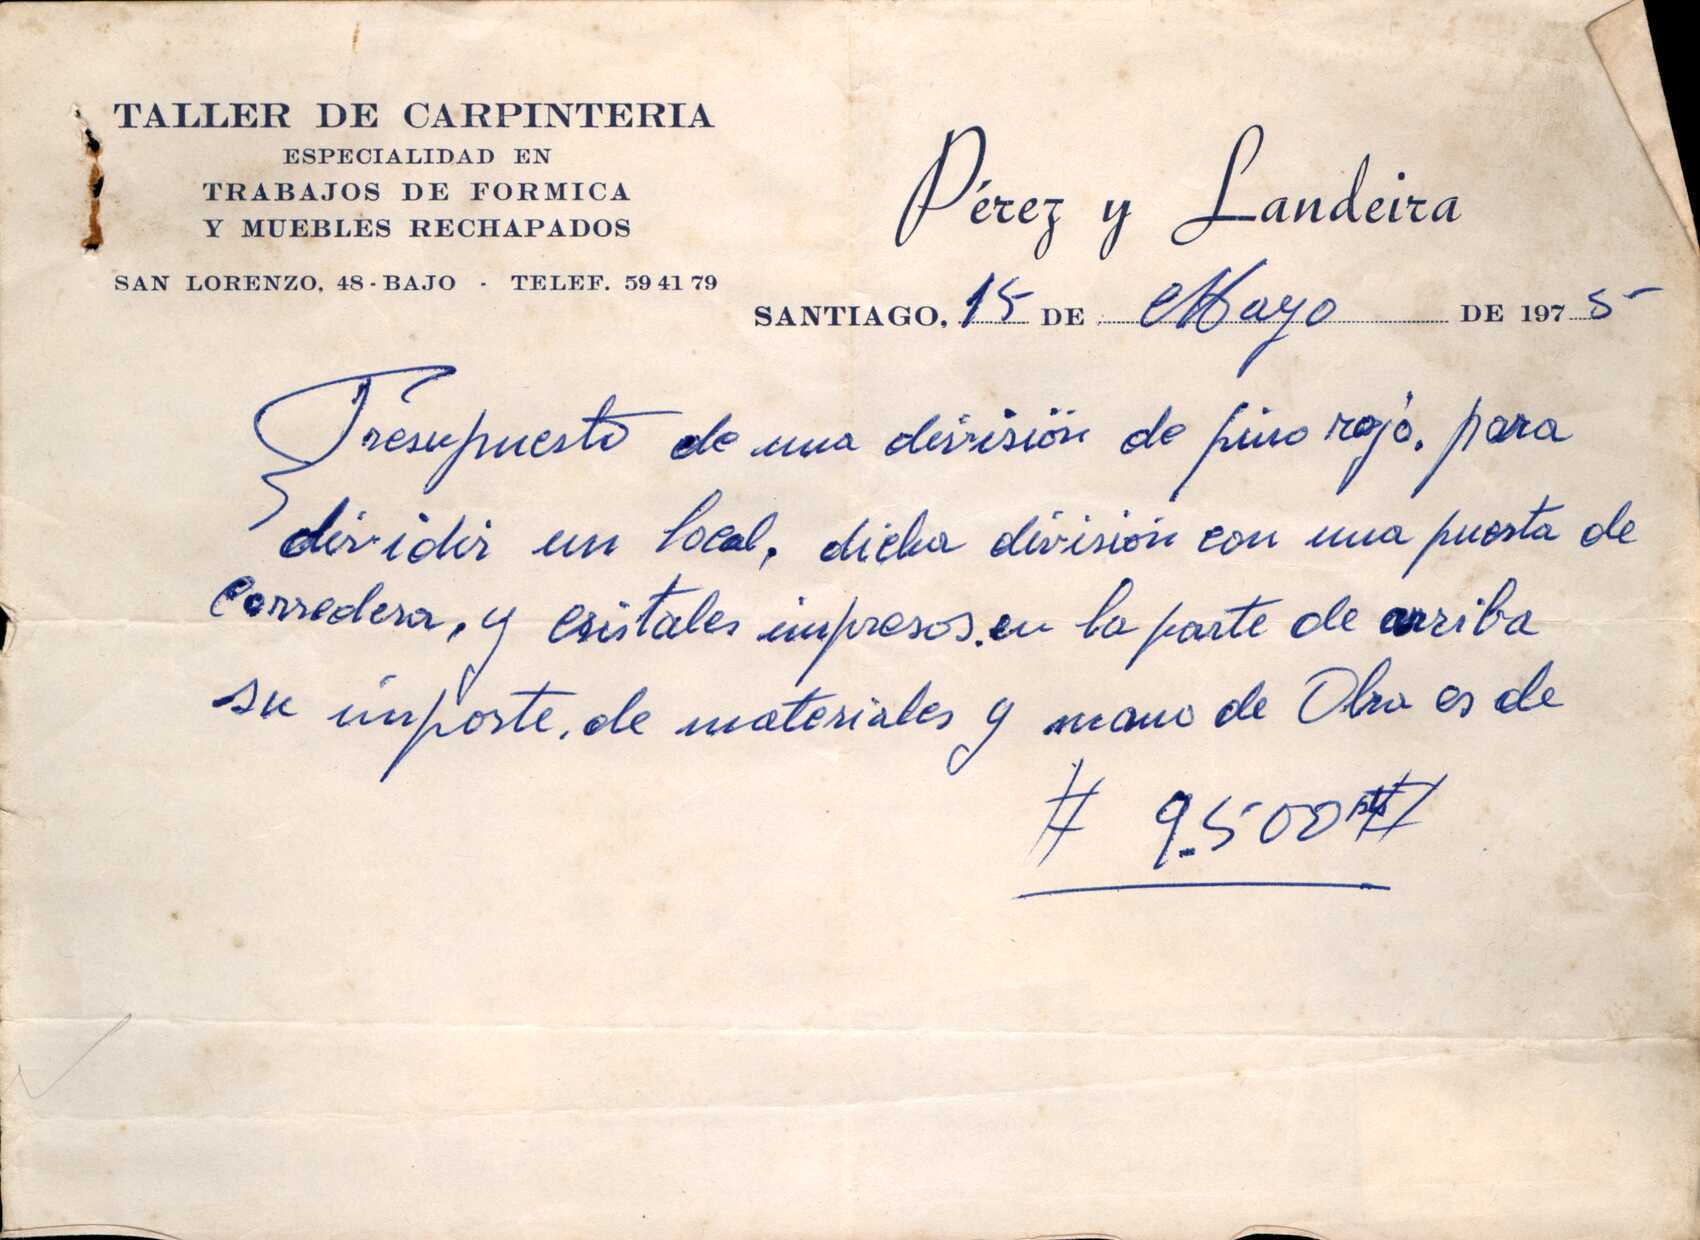 TALLER DE CARPINTERIA
ESPECIALIDAD EN
TRABAJOS DE FORMICA
Y MUEBLES RECHAPADOS
SAN LORENZO, 48 - BAJO - TELEF. 59 41 79
Pérez y Landeira
SANTIAGO, 15 DE Mayo DE 1975
Presupuesto de una división de pino rojo. para
dividir un local, dicha división con una puerta de
corredera, y cristales impresos. en la parte de arriba
su importe, de materiales y mano de Obra es de
# 9.500 pts #